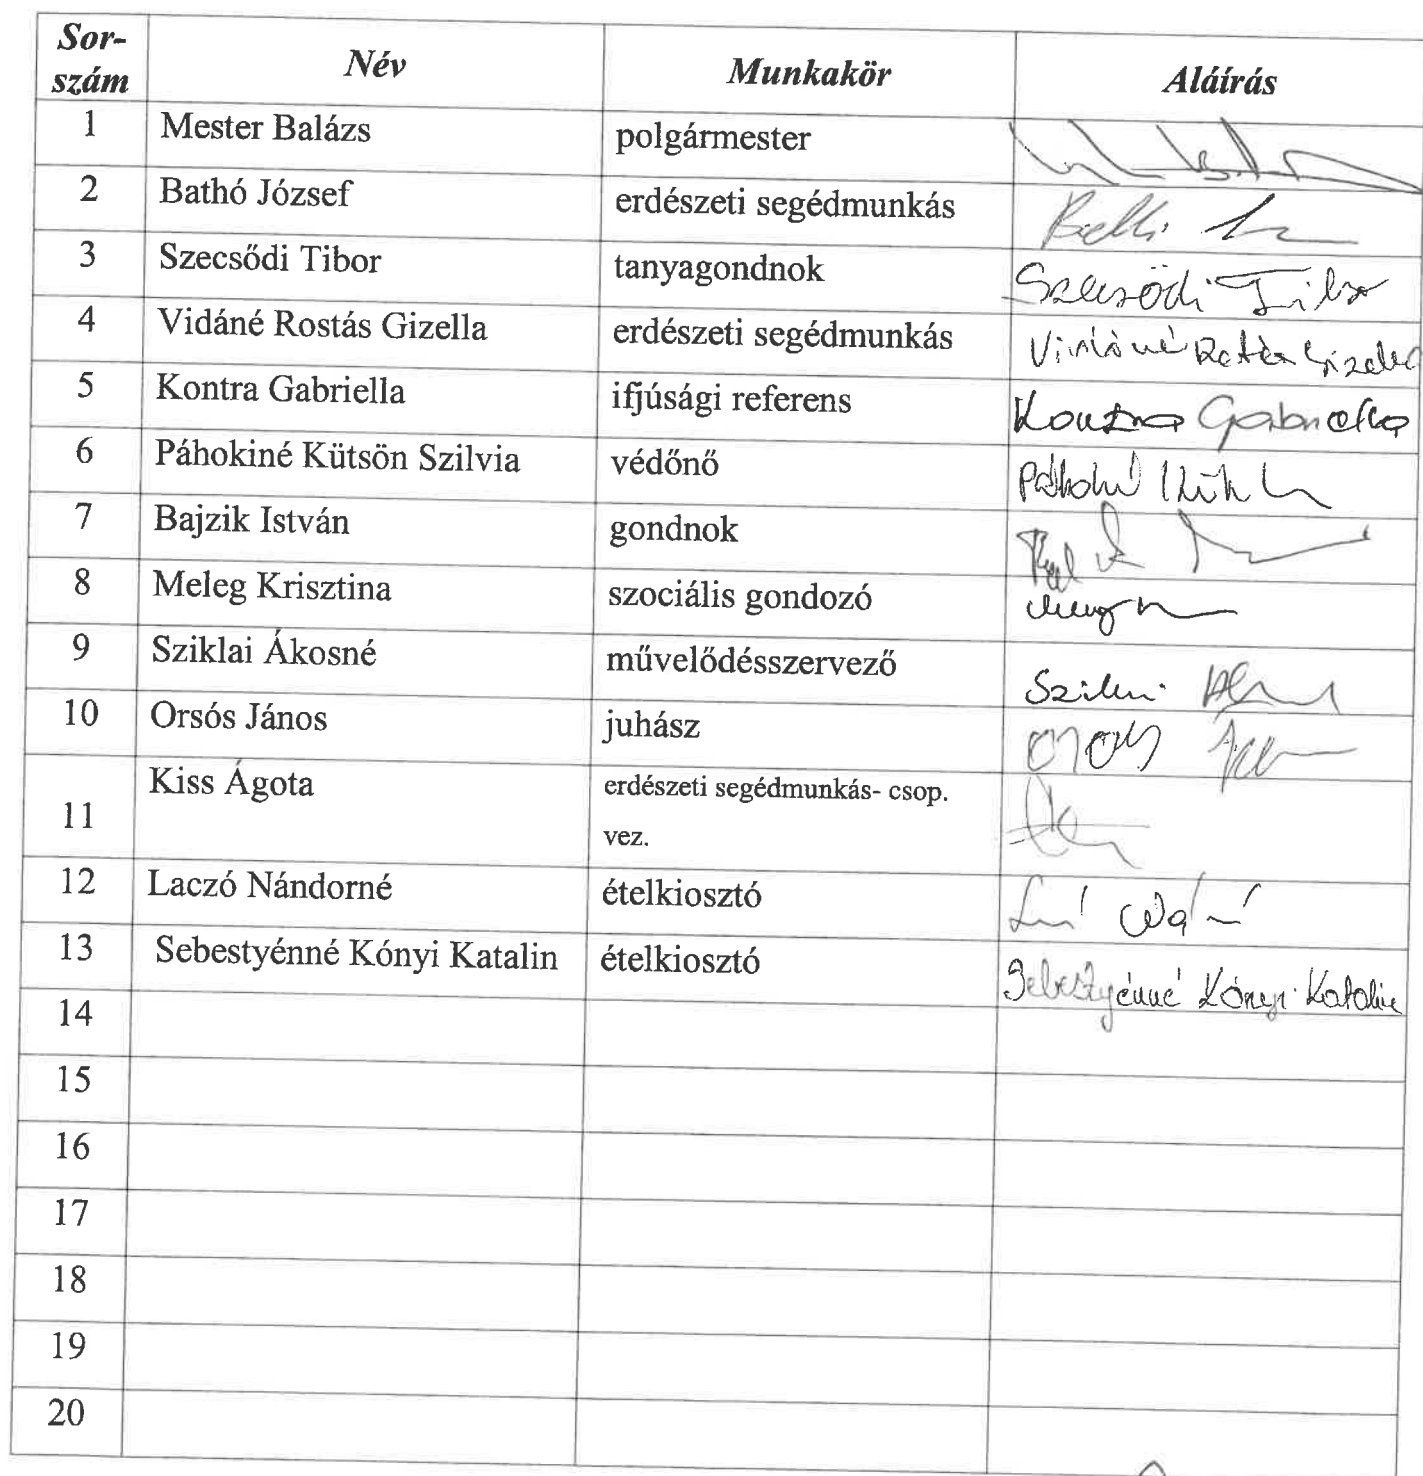 Sor-
szám Név Munkakör Aláírás
1 Mester Balázs polgármester
2 Bathó József erdészeti segédmunkás
3 Szecsődi Tibor tanyagondnok Szecsődi Tibor
4 Vidáné Rostás Gizella erdészeti segédmunkás
5 Kontra Gabriella ifjúsági referens Kontra Gabriella
6 Páhokiné Kütsön Szilvia védőnő
7 Bajzik István gondnok
8 Meleg Krisztina szociális gondozó
9 Sziklai Ákosné művelődésszervező
10 Orsós János juhász
11 Kiss Ágota erdészeti segédmunkás- csop.
vez.
12 Laczó Nándorné ételkiosztó
13 Sebestyénné Kónyi Katalin ételkiosztó Sebestyénné Kónyi Katalin
14
15
16
17
18
19
20